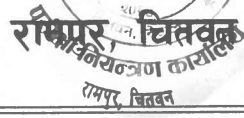 रामपुर, चितवन
नियन्त्रण कार्यालय
रामपुर, चितवन